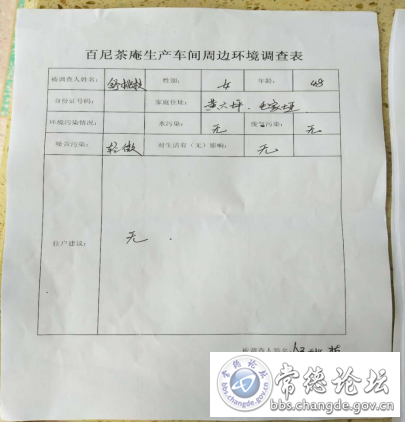 百尼茶庵生产车间周边环境调查表
被调查人姓名： 性别： 女 年龄： 48
身份证号码： 家庭住址：
环境污染情况： 水污染： 无 废气污染： 无
噪音污染： 轻微 对生活有（无）影响： 无
住户建议： 无.
被调查人签名：
常德论坛
bbs.changde.gov.cn